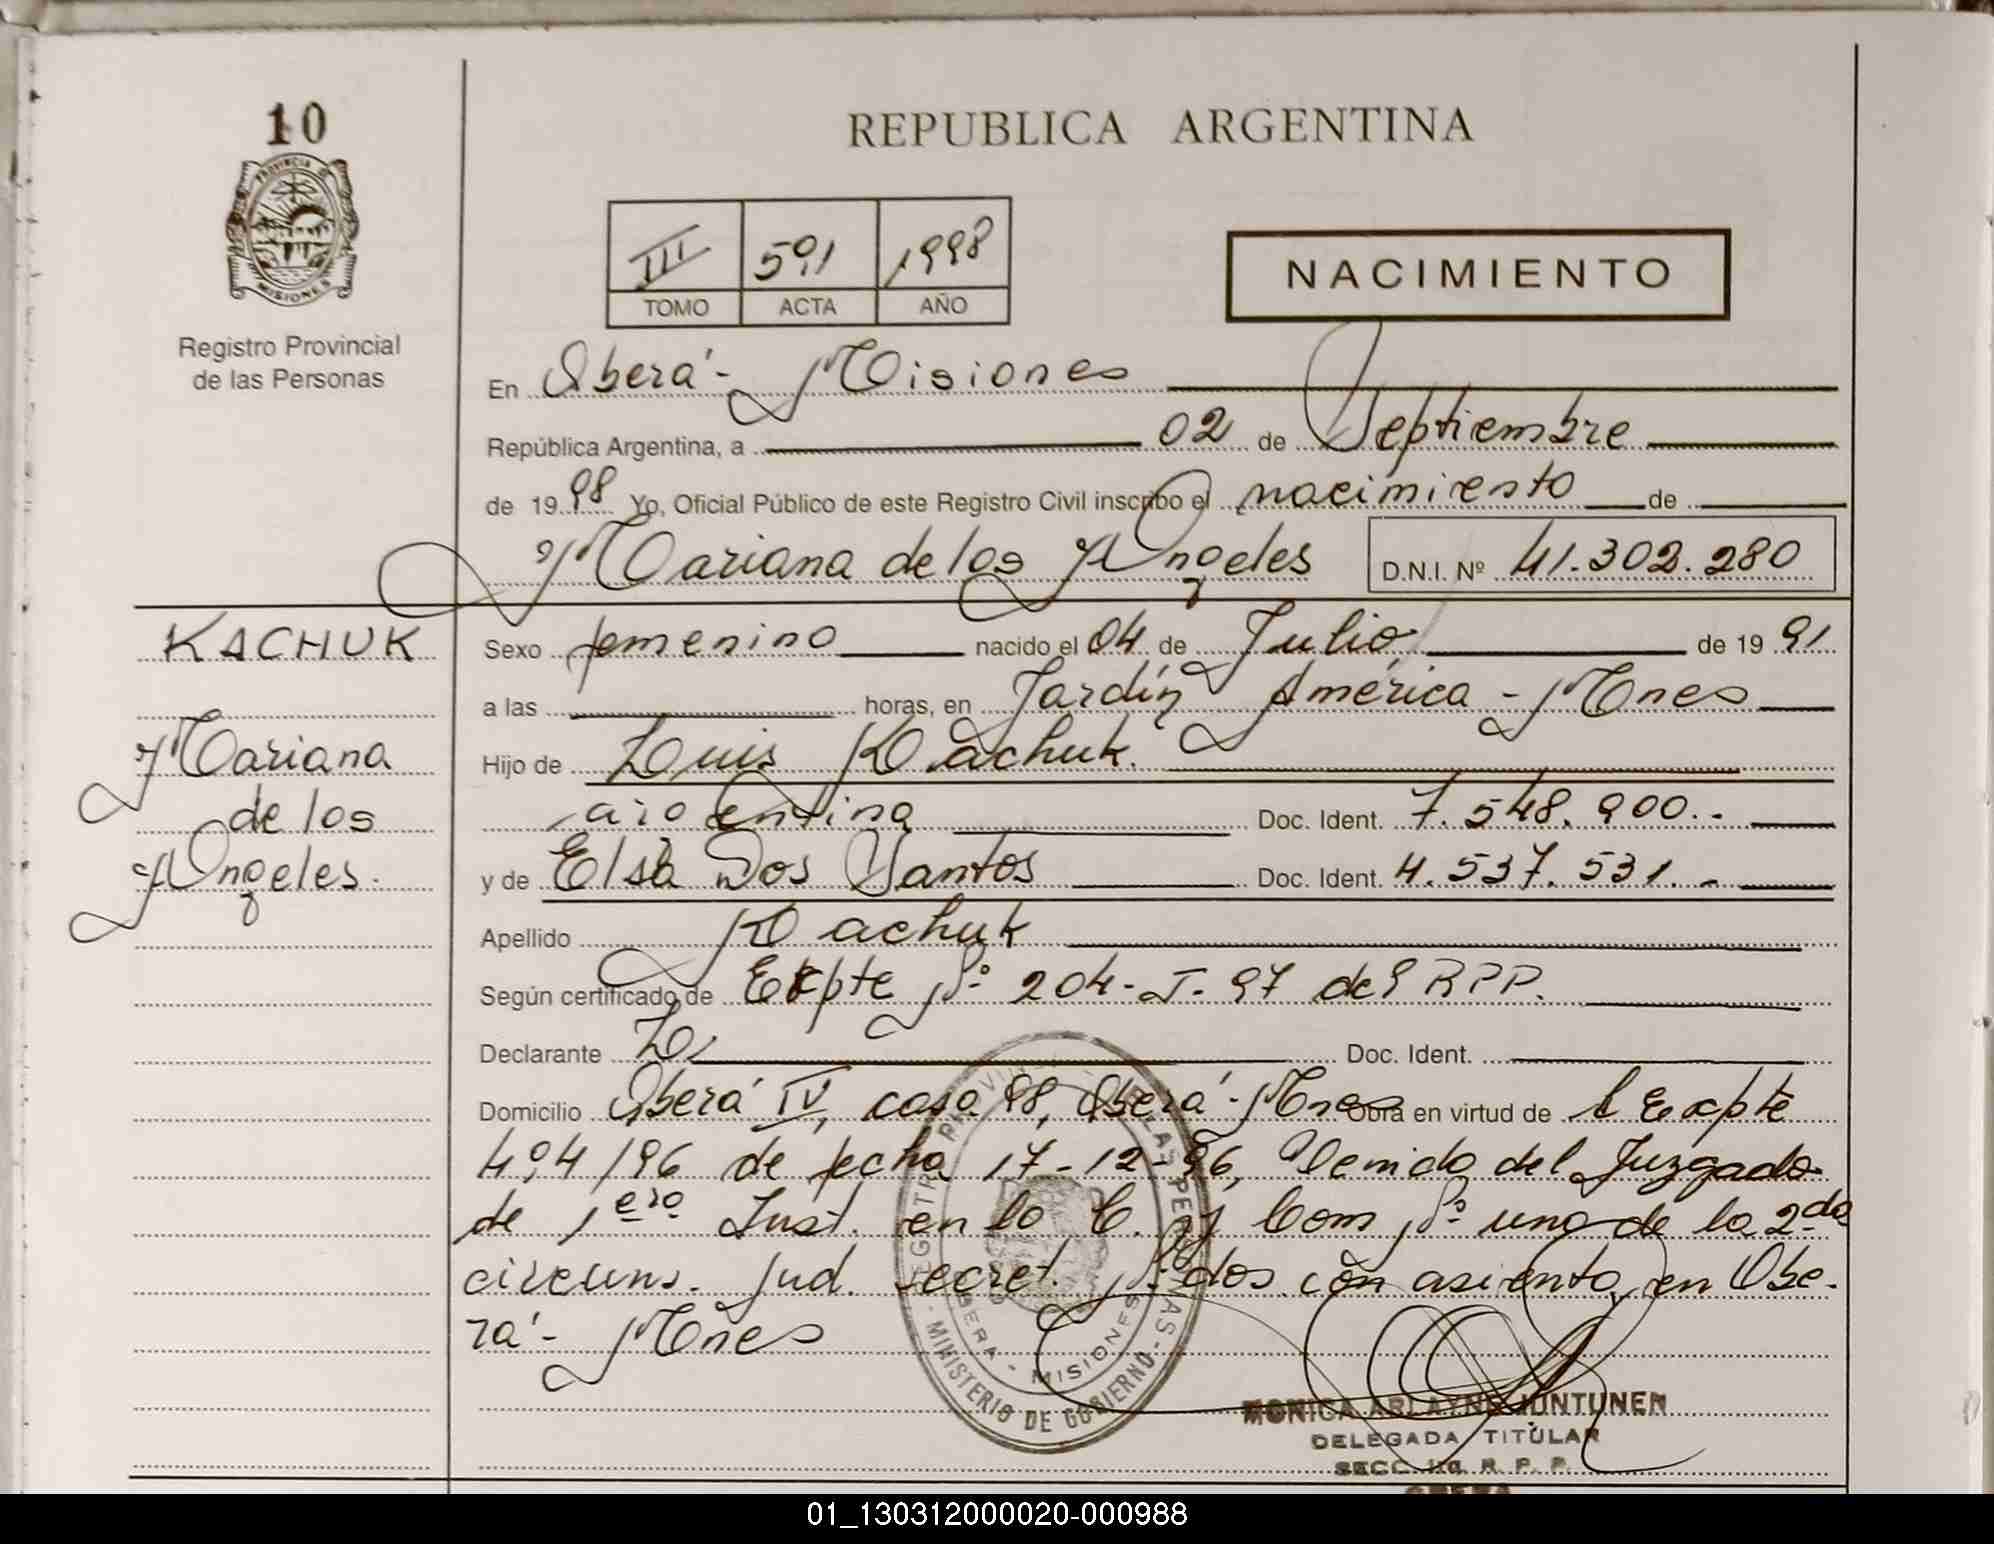 10
PROVINCIA DE
MISIONES
Registro Provincial
de las Personas
REPUBLICA ARGENTINA
III 591 1998
TOMO ACTA AÑO
NACIMIENTO
En Oberá - Misiones
República Argentina, a 02 de Septiembre
de 19 98 Yo, Oficial Público de este Registro Civil inscribo el nacimiento de
Mariana de los Angeles D.N.I. Nº 41.302.280
KACHUK
Mariana
de los
Angeles.
Sexo femenino nacido el 04 de Julio de 19 91
a las horas, en Jardín América - Mnes
Hijo de Luis Kachuk.
argentina Doc. Ident. 7.548.900.-
y de Elsa Dos Santos Doc. Ident. 4.537.531.-
Apellido Kachuk
Según certificado de Expte Nº 204-I-97 del RPP.
Declarante Doc. Ident.
Domicilio Oberá IV, casa 98, Oberá - Mnes Obra en virtud de l Expte
494/96 de fecha 17-12-96, Venido del Juzgado
de 1era Inst. en lo C. y Com Nº uno de la 2da
circuns. Jud. secret. Nº dos con asiento en Obe-
rá - Mnes
REGISTRO PROVINCIAL DE LAS PERSONAS
OBERA - MISIONES
MINISTERIO DE GOBIERNO
MONICA ARLAYNE JUNTUNEN
DELEGADA TITULAR
SECC. R. P. P.
OBERA
01_130312000020-000988